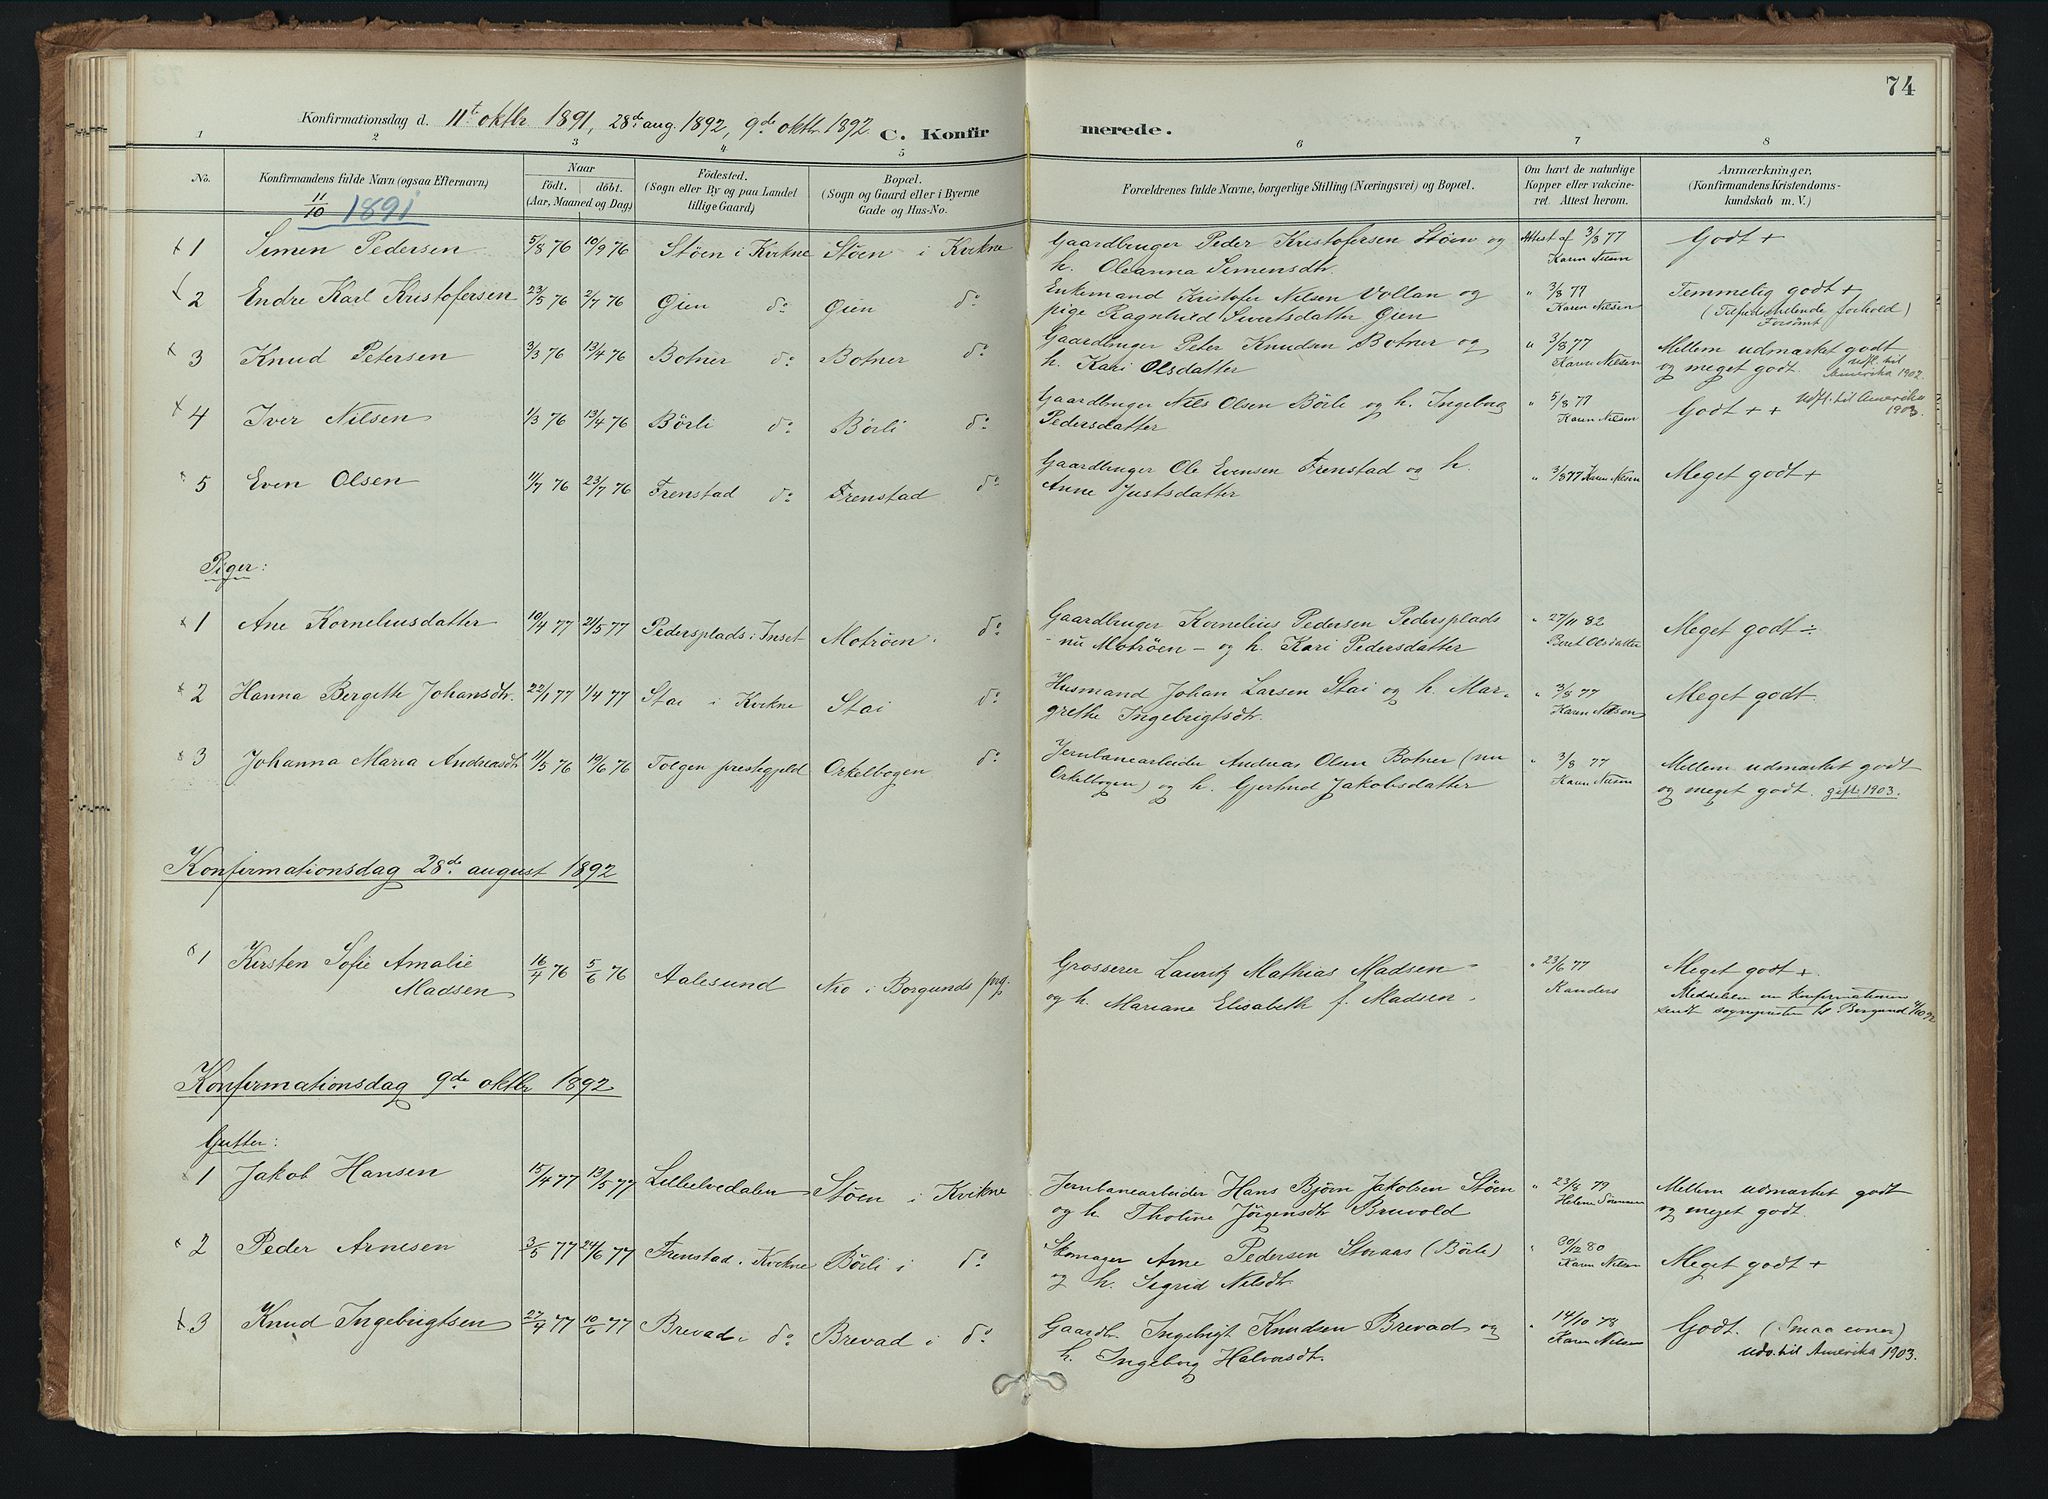 74
Konfirmationsdag d. 11t oktbr 1891, 28de aug. 1892, 9de oktbr 1892 C. Konfirmerede.
1 2 3 4 5 6 7 8
No.
Konfirmandens fulde Navn (ogsaa Efternavn)
Naar
født. døbt.
(Aar, Maaned og Dag)
Fødested.
(Sogn eller By og paa Landet
tillige Gaard)
Bopæl.
(Sogn og Gaard eller i Byerne
Gade og Hus-No.
Forældrenes fulde Navne, borgerlige Stilling (Næringsvei) og Bopæl.
Om havt de naturlige
Kopper eller vakcine-
ret. Attest herom.
Anmærkninger.
(Konfirmandens Kristendoms-
kundskab m. V.)
11/10 1891
1 Simen Pedersen 5/8 76 10/9 76 Støen i Kvikne Støen i Kvikne Gaardbruger Peder Kristofersen Støen og Attest af 3/8 77 Godt +
h. Oleanna Simensdtr. Karen Nilsen
2 Endre Karl Kristofersen 23/5 76 2/7 76 Øien do Øien do Enkemand Kristofer Nilsen Vollan og " 3/8 77 Temmelig godt +
pige Ragnhild Sivertsdatter Øien Karen Nilsen (Tilfredsstillende forhold)
Forsømt
3 Knud Petersen 3/3 76 13/4 76 Botner do Botner do Gaardbruger Peter Knudsen Botner og " 3/8 77 Mellem udmærket godt
h. Kari Olsdatter Karen Nilsen og meget godt. udfl. til
Amerika 1902.
4 Iver Nilsen 1/3 76 13/4 76 Børli do Børli do Gaardbruger Nils Olsen Børli og h. Ingeborg " 5/8 77 Godt + + udfl. til Amerika
Pedersdatter Karen Nilsen 1903.
5 Even Olsen 11/7 76 23/7 76 Frenstad do Frenstad do Gaardbruger Ole Evensen Frenstad og h. " 3/8 77 Karen Nilsen Meget godt +
Anne Justsdatter
Piger:
1 Ane Korneliusdatter 10/4 77 21/5 77 Pedersplads i Inset Motrøen do Gaardbruger Kornelius Pedersen Pedersplads " 27/11 82 Meget godt ÷
- nu Motrøen - og h. Kari Pedersdatter Beret Olsdatter
2 Hanna Bergitte Johansdtr. 22/1 77 1/4 77 Stai i Kvikne Stai do Husmand Johan Larsen Stai og h. Mar- " 3/8 77 Meget godt.
grethe Ingebrigtsdtr. Karen Nilsen
3 Johanna Maria Andreasdtr 11/5 76 19/6 76 Tolgen prestegjeld Orkelbogen do Jernbanearbeider Andreas Olsen Botner (nu " 3/8 77 Mellem udmærket godt
Orkelbogen) og h. Gjertrud Jakobsdatter Karen Nilsen og meget godt. gift 1903.
Konfirmationsdag 28de august 1892
1 Kirsten Sofie Amalie 16/4 76 5/6 76 Aalesund Nø i Borgunds prg. Grosserer Lauritz Mathias Madsen " 23/6 77 Meget godt +
Madsen og h. Mariane Elisabeth f. Madsen. Randers Meddelelse om konfirmationen
sendt sogneprsten til Borgund 11/10 92
Konfirmationsdag 9de oktbr 1892
Gutter:
1 Jakob Hansen 15/4 77 13/5 77 Lillelvedalen Støen i Kvikne Jernbanearbeider Hans Bjørn Jakobsen Støen " 23/8 79 Mellem udmærket godt
og h. Tholine Jørgensdtr Bruvold Helene Sørensen og meget godt.
2 Peder Arnesen 3/5 77 24/6 77 Frenstad i Kvikne Børli i do Skomager Arne Pedersen Storaas (Børli) " 30/12 80 Meget godt +
og h. Sigrid Nilsdtr. Karen Nilsen
3 Knud Ingebrigtsen 27/4 77 10/6 77 Brevad i do Brevad i do Gaardbr. Ingebrigt Knudsen Brevad og " 14/10 78 Godt. (Smaa evner)
h. Ingeborg Halvorsdtr. Karen Nilsen udv. til Amerika 1903.